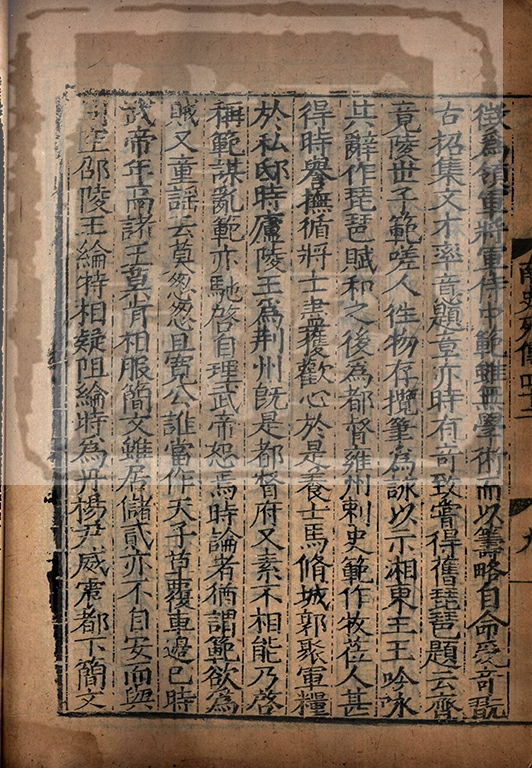 徵爲領軍將軍侍中範雖無學術而以籌略自命愛奇翫
古招集文才率意題章亦時有奇致嘗得舊琵琶題云齊
竟陵世子範嗟人徃物存攬筆爲詠以示湘東王王吟咏
其辭作琵琶賦和之後爲都督雍州刺史範作牧莅人甚
得時譽撫循將士盡獲歡心於是養士馬脩城郭聚軍糧
於私邸時廬陵王爲荆州旣是都督府又素不相能乃啓
稱範謀亂範亦馳啓自理武帝恕焉時論者猶謂範欲爲
賊又童謡云莫怱怱且寬公誰當作天子草覆車邊已時
武帝年高諸王莫肯相服簡文雖居儲貳亦不自安而與
司空邵陵王綸特相疑阻綸時爲丹楊尹威震都下簡文